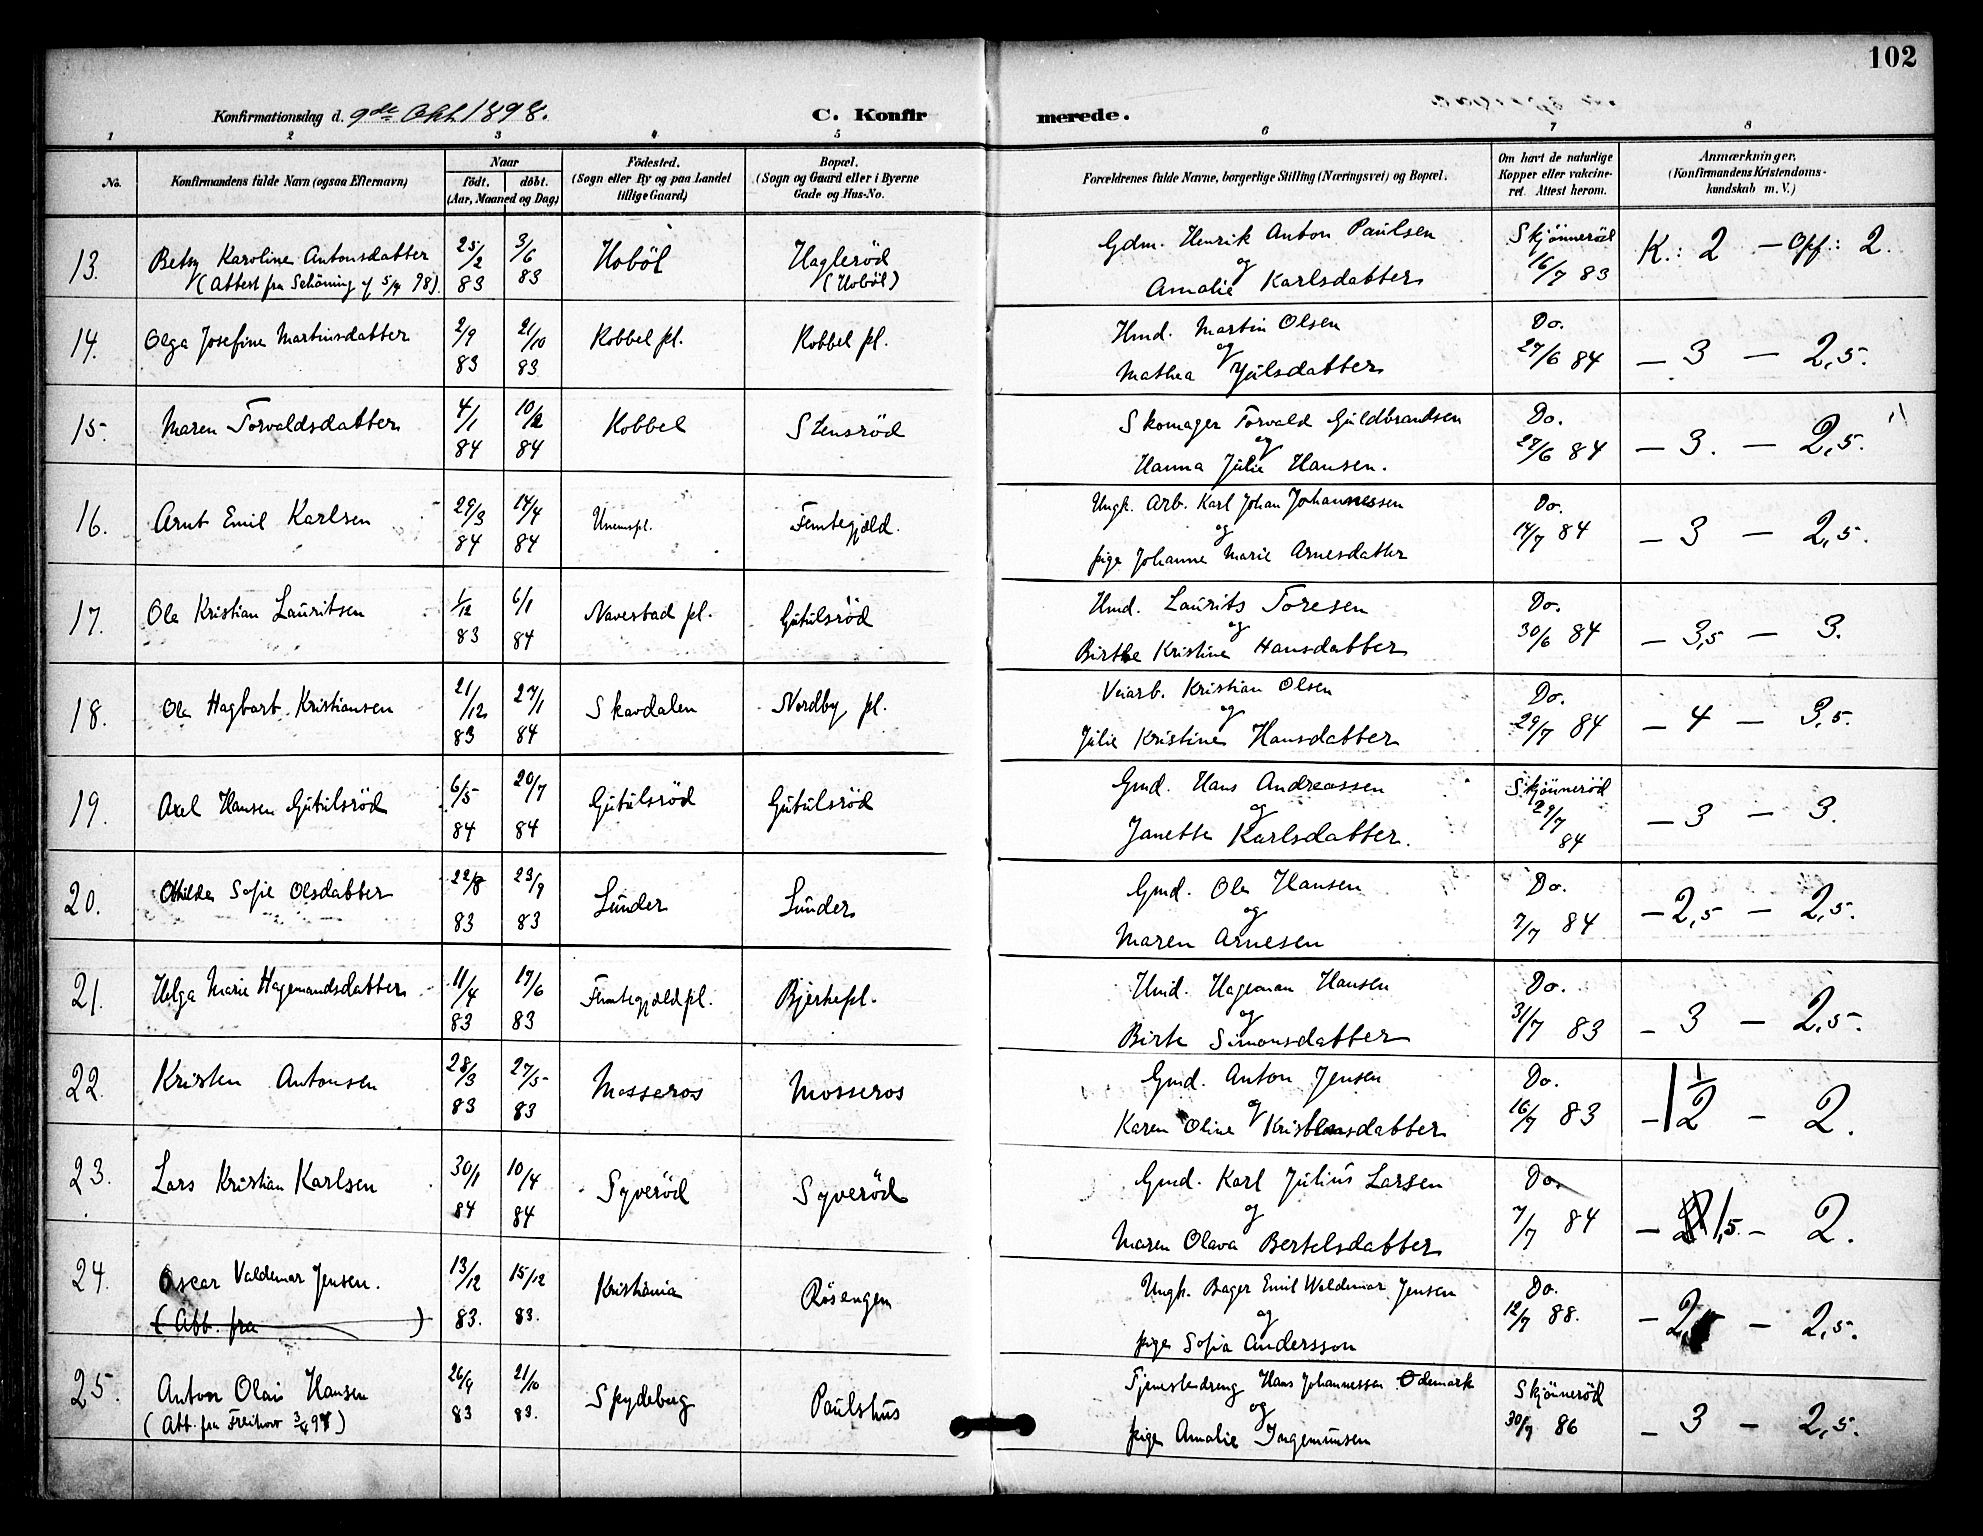 102
Konfirmationsdag d. 9de Okt 1898.
C. Konfirmerede.
1 2 3 4 5 6 7 8
No.
Konfirmandens fulde Navn (ogsaa Efternavn)
Naar
födt. döbt.
(Aar, Maaned og Dag)
Födested.
(Sogn eller By og paa Landet
tillige Gaard)
Bopæl.
(Sogn og Gaard eller i Byerne
Gade og Hus-No.
Forældrenes fulde Navne, borgerlige Stilling (Næringsvei) og Bopæl.
Om havt de naturlige
Kopper eller vakcine-
ret. Attest herom.
Anmærkninger.
(Konfirmandens Kristendoms-
kundskab m. V.)
13. Betsy Karoline Antonsdatter 25/2 83 3/6 83 Hobøl Hagleröd Gdm. Henrik Anton Paulsen Skjönneröd K.: 2 - Opf: 2.
(Attest fra Schöning af 5/4 98) (Hobøl) og Amalie Karlsdatter 16/7 83
14. Olga Josefine Martinsdatter 2/9 83 21/10 83 Kobbel pl. Kobbel pl. Hmd. Martin Olsen Do. - 3 - 2,5.
og Mathea Julsdatter 27/6 84
15. Maren Torvaldsdatter 4/1 84 10/2 84 Kobbel Stensröd Skomager Torvald Guldbrandsen Do. - 3. - 2,5.
og Hanna Julie Hansen. 27/6 84
16. Arnt Emil Karlsen 29/3 84 14/4 84 Unumspl. Femtegjæld. Ungk. Arb. Karl Johan Johannessen Do. - 3 - 2,5.
og pige Johanne Marie Arnesdatter 14/7 84
17. Ole Kristian Lauritsen 1/12 83 6/1 84 Navestad pl. Gutulsröd Hmd. Laurits Toresen Do. - 3,5 - 3.
og Birthe Kristine Hansdatter 30/6 84
18. Ole Hagbart Kristiansen 21/12 83 27/1 84 Skavdalen Nordby pl. Veiarb. Kristian Olsen Do. - 4 - 3,5.
og Julie Kristine Hansdatter 29/7 84
19. Axel Hansen Gutulsröd 6/5 84 20/7 84 Gutulsröd Gutulsröd Gmd. Hans Andreassen Skjönneröd - 3 - 3.
og Janette Karlsdatter. 29/7 84
20. Othilde Sofie Olsdatter 22/8 83 23/9 83 Sunder Sunder Gmd. Ole Hansen Do. - 2,5 - 2,5.
og Maren Arnesen 7/7 84
21. Helga Marie Hagemandsdatter 11/4 83 17/6 83 Femtegjæld pl. Bjerkepl. Hmd. Hageman Hansen Do. - 3 - 2,5.
og Birte Simonsdatter 31/7 83
22. Kristen Antonsen 28/3 83 27/5 83 Mosseros Mosseros Gmd. Anton Jensen Do. - 1 1/2 - 2.
og Karen Oline Kristensdatter 16/7 83
23. Lars Kristian Karlsen 30/1 84 10/4 84 Syveröd Syveröd Gmd. Karl Julius Larsen Do. - 1,5 - 2.
og Maren Olava Bertelsdatter 7/7 84
24. Oscar Valdemar Jensen. 13/12 83. 15/12 83. Kristiania Rösengen Ungk. Bager Emil Waldemar Jensen Do. - 2 - 2,5.
(Att. fra ) og pige Sofia Andersson 12/7 88.
25. Anton Olai Hansen 26/9 83 21/10 83. Spydeberg Paulshus Tjenestedreng Hans Johannessen Ödemark Skjönneröd - 3 - 2,5.
(Att. fra 3/4 98) og pige Amalie Ingemunsen 30/9 86